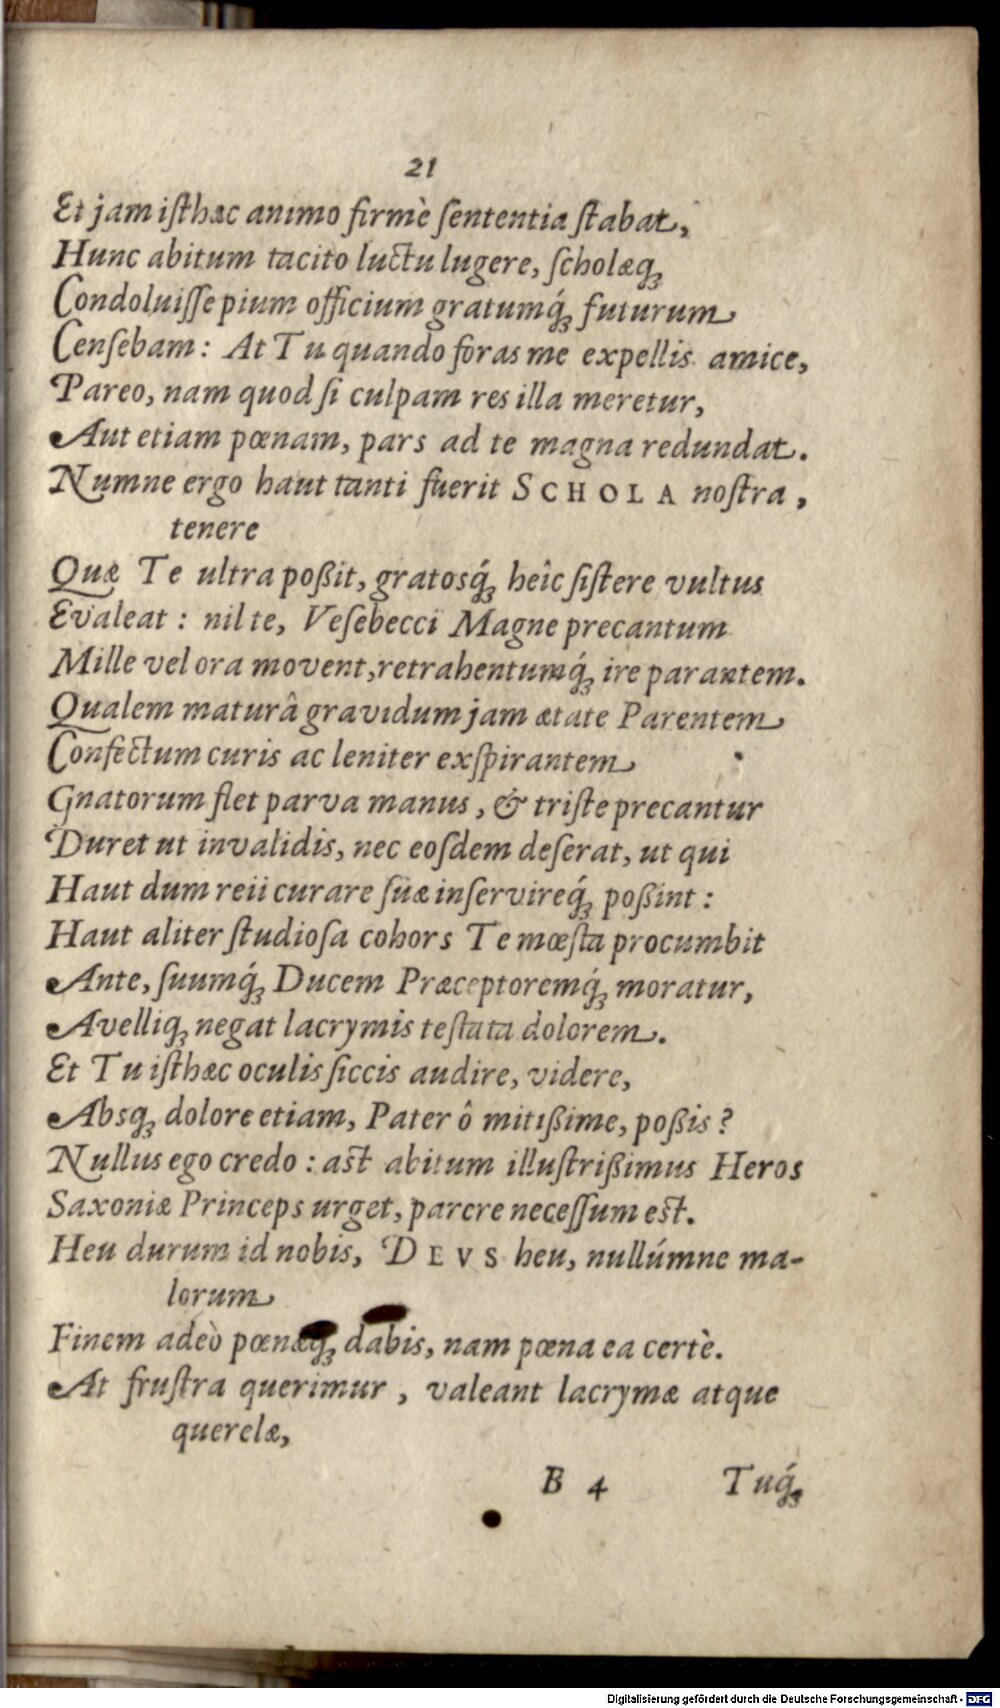 21
Et jam iſthæc animo firmè ſententia ſtabat,
Hunc abitum tacito luctu lugere, ſcholæq́ꝫ
Condoluiſſe pium officium gratumq́ꝫ futurum
Cenſebam: At Tu quando foras me expellis amice,
Pareo, nam quod ſi culpam res illa meretur,
Aut etiam pœnam, pars ad te magna redundat.
Numne ergo haut tanti fuerit SCHOLA noſtra,
tenere
Quæ Te ultra poßit, gratosq́ꝫ heîc ſiſtere vultus
Evaleat: nil te, Veſebecci Magne precantum
Mille vel ora movent, retrahentumq́ꝫ ire parantem.
Qualem maturâ gravidum jam ætate Parentem
Confectum curis ac leniter exſpirantem
Gnatorum flet parva manus, & triſte precantur
Duret ut invalidis, nec eosdem deſerat, ut qui
Haut dum reii curare ſüæ inſervireq́ꝫ poßint:
Haut aliter ſtudioſa cohors Te mœſta procumbit
Ante, ſuumq́ꝫ Ducem Præceptoremq́ꝫ moratur,
Avelliqꝫ negat lacrymis teſtata dolorem.
Et Tu iſthæc oculis ſiccis audire, videre,
Absqꝫ dolore etiam, Pater ô mitißime, poßis?
Nullus ego credo: aſt abitum illuſtrißimus Heros
Saxoniæ Princeps urget, parere neceſſum eſt.
Heu durum id nobis, DEVS heu, nullúmne ma-
lorum
Finem adeò pœnæqꝫ dabis, nam pœna ea certè.
At fruſtra querimur, valeant lacrymæ atque
querelæ,
B 4 Tuq́ꝫ
Digitalisierung gefördert durch die Deutsche Forschungsgemeinschaft - DFG